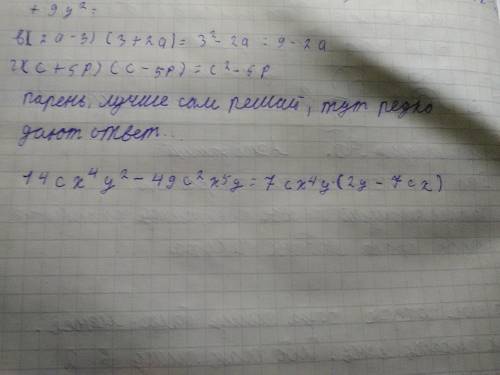 + 9y²=
в) (2a-3) (3+2a)= 3²-2a = 9-2a
г) (c+5p) (c-5p)=c²-5p
парень, лучше сам решай, тут редко
дают ответ...
14cx⁴y²-49c²x⁵y=7cx⁴y·(2y-7cx)